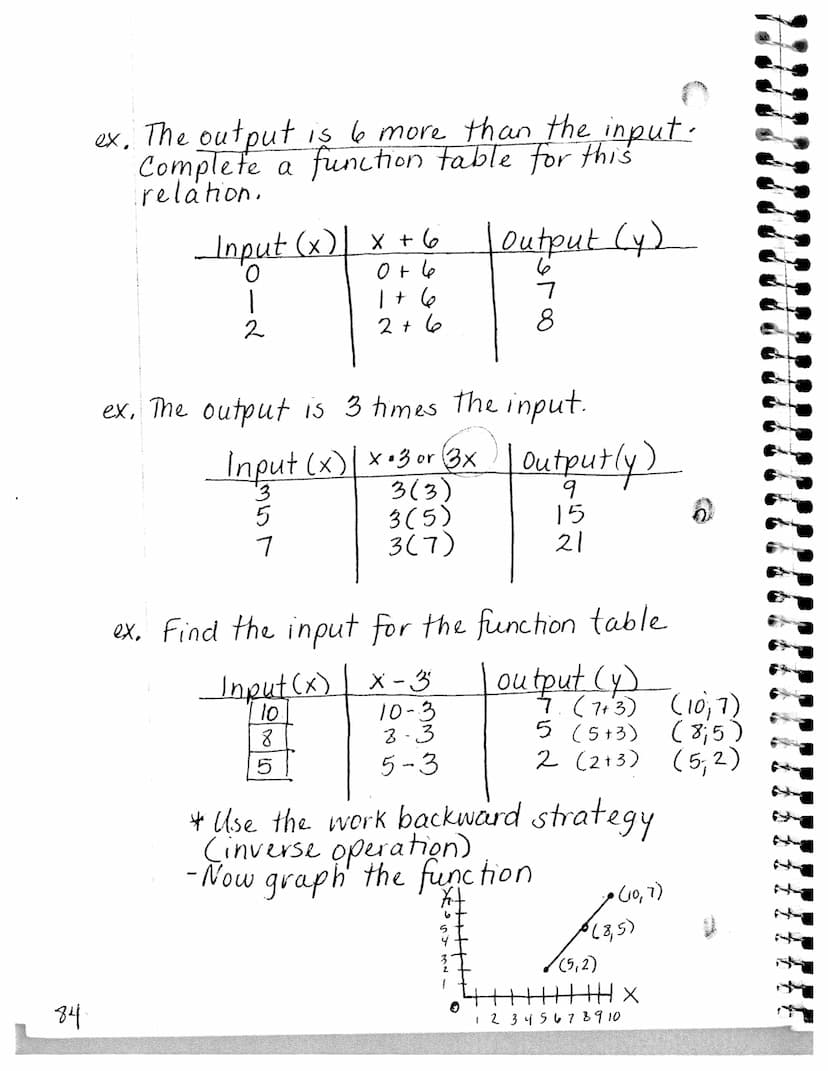 ex. The output is 6 more than the input.
Complete a function table for this
relation.
Input (x) x + 6 Output (y)
0 0 + 6 6
1 1 + 6 7
2 2 + 6 8
ex. The output is 3 times the input.
Input (x) x • 3 or 3x Output (y)
3 3(3) 9
5 3(5) 15
7 3(7) 21
ex. Find the input for the function table
Input (x) x - 3 output (y)
10 10-3 7 (7+3) (10,7)
8 8-3 5 (5+3) (8,5)
5 5-3 2 (2+3) (5,2)
* Use the work backward strategy
(inverse operation)
-Now graph the function
(10,7)
6
5 (8,5)
4
3
2 (5,2)
1
0 X
1 2 3 4 5 6 7 8 9 10
84